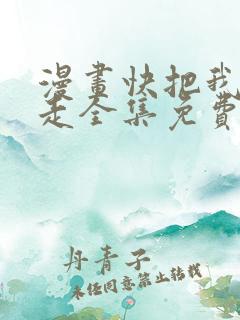 漫畫快把我
走全集免費
丹青子
未经同意禁止转载